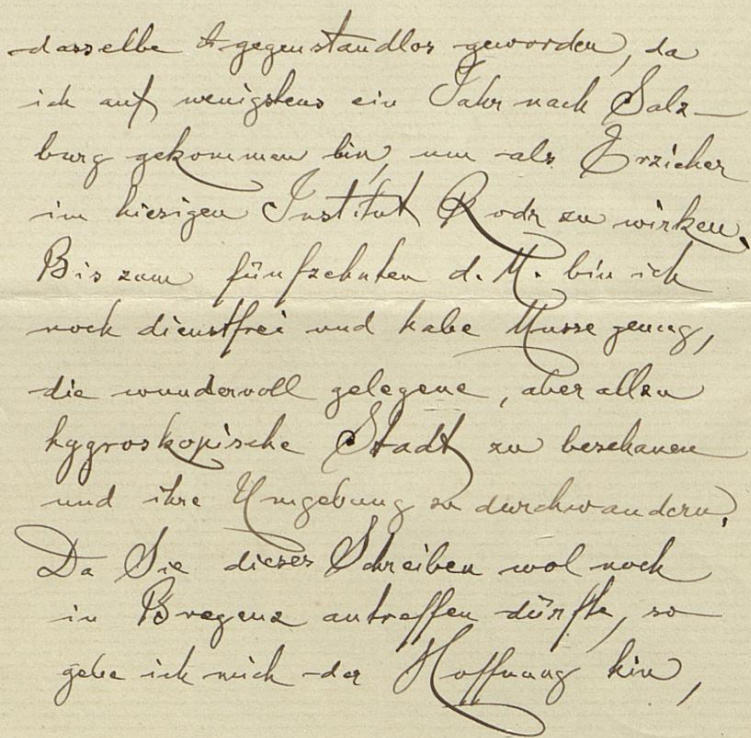 dasselbe gegenstandlos geworden, da
ich auf wenigstens ein Jahr nach Salz-
burg gekommen bin, um als Erzieher
im hiesigen Institut zu wirken.
Bis zum fünfzehnten d. M. bin ich
noch dienstfrei und habe Musse genug,
die wundervoll gelegene, aber allzu
hygroskopische Stadt zu beschauen
und ihre Umgebung zu durchwandern.
Da Sie dieses Schreiben wol noch
in Bregenz antreffen dürfte, so
gebe ich mich der Hoffnung hin,